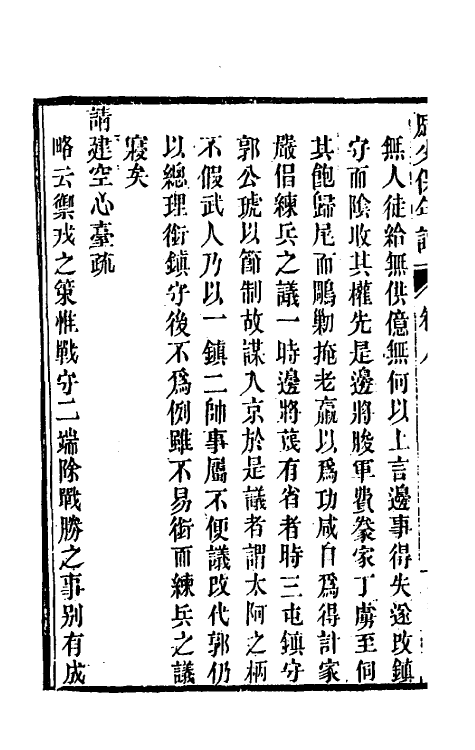 戚少保年譜
卷八
無人徒給無供億無何以上言邊事得失遂改鎮
守而陰收其權先是邊將朘軍費豢家丁虜至伺
其飽歸尾而鵰勦掩老羸以爲功咸自爲得計家
嚴倡練兵之議一時邊將蔑有省者時三屯鎮守
郭公琥以節制故謀入京於是議者謂太阿之柄
不假武人乃以一鎮二帥事屬不便議改代郭仍
以總理銜鎮守後不爲例雖不易銜而練兵之議
寢矣
請建空心臺疏
略云禦戎之策惟戰守二端除戰勝之事别有成